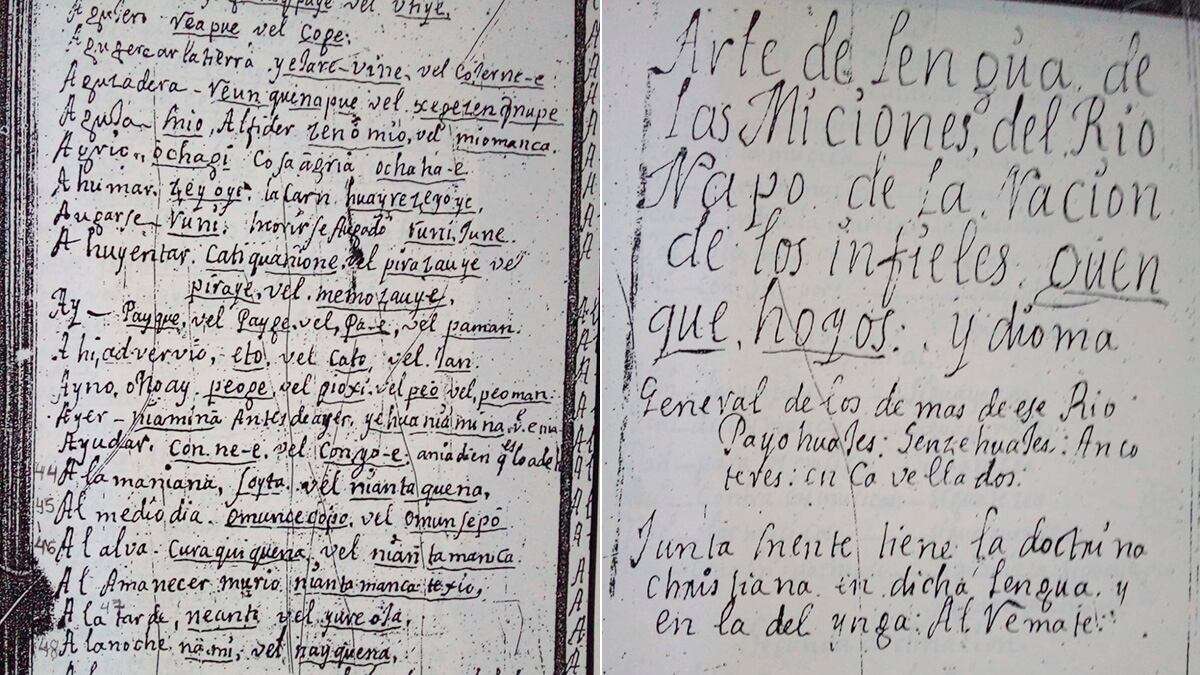 Agujero veapue vel Cope.
Agugerear la tierra yelare-vine, vel Coterne-e
Aguzadera - veun quenapue vel.
Aguda - mio, Alfider zenò mio, vel miomanca.
Agrio, ochagi Cosa ágria ochaha-e
Ahumar. zeyoye. la Carn. huayrezeyoye,
Augarse - runi. morirse flugado runi, June.
Ahuyentar. Catiquanione. vel pirazauye vel
piraye, vel. memozauye.
Ay - Payque, vel Payge, vel, Pa-e, vel paman.
Ahi, advervio, eto, vel Cato, vel. Jan.
Ayno, o Noay. peoge vel pioxi. vel peo vel, peoman.
Ayer - niamina Antes de ayer, yehuaniamina,
Ayudar. Con-ne-e. vel Conzo-e.
44 A la maniana, soyta. vel niantaquena,
45 Al medio dia. omuncecopo, vel omunsepo
46 Al alva. Curaquiquena, vel niantamanca.
Al Amanecer murio niantamanca texio,
47 A la tarde, neanti vel yureoja,
48 A la noche, na.mi, vel nayquena,
Arte de lengua. de
las Miciones, del. Rio
Napo. de la. Nacion
de los infieles. Quen
que, hoyos: . y dioma
General de los de mas de ese Rio.
Payohuajes: Senzehuajes: Anco
teres: en Ca vellados.
Junta mente tiene la doctrina
christiana en dicha lengua. y
en la del ynga: Al Remate:.